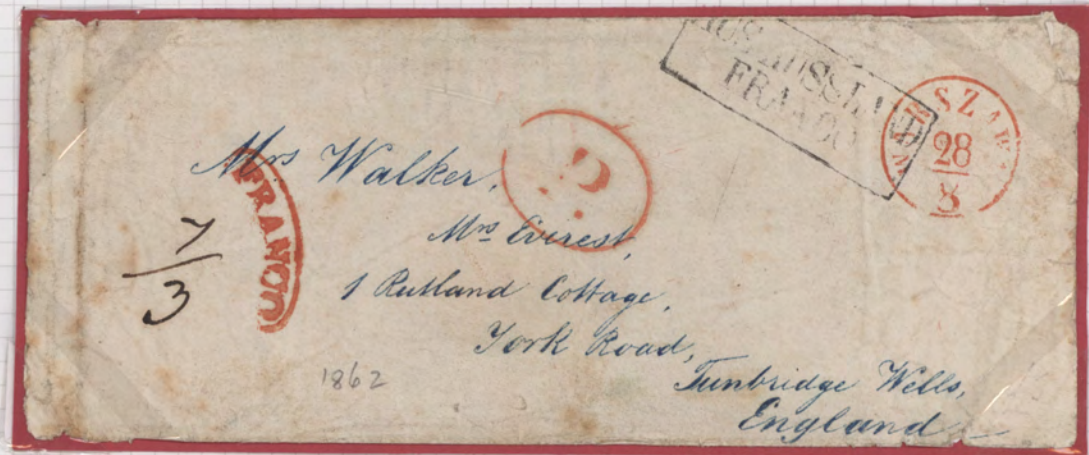 AUS RUSSLAND
FRANCO
WARSZAWA
28
8
P.
FRANCO
7
3
Mrs Walker,
Mrs Everest,
1 Rutland Cottage,
York Road,
Tunbridge Wells,
England
1862